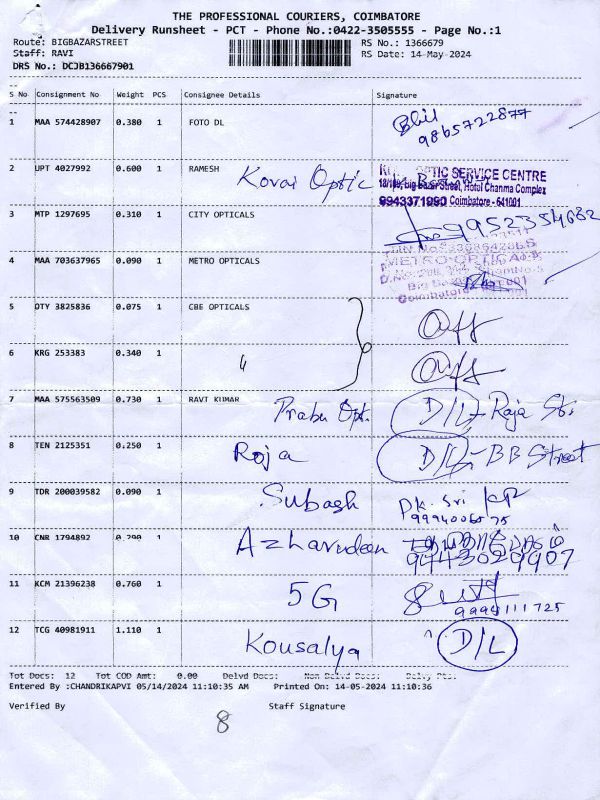 THE PROFESSIONAL COURIERS, COIMBATORE
Delivery Runsheet - PCT - Phone No.:0422-3505555 - Page No.:1
Route: BIGBAZARSTREET RS No.: 1366679
Staff: RAVI RS Date: 14-May-2024
DRS No.: DCJB136667901
S No Consignment No Weight PCS Consignee Details Signature
1 MAA 574428907 0.380 1 FOTO DL
9865722877
2 UPT 4027992 0.600 1 RAMESH Kovai Optic
OPTIC SERVICE CENTRE
Big Bazar Street, Hotel Channma Complex
9943371990 Coimbatore - 641001
3 MTP 1297695 0.310 1 CITY OPTICALS 9952354682
4 MAA 703637965 0.090 1 METRO OPTICALS
METRO OPTICALS
Coimbatore
5 DTY 3825836 0.075 1 CBE OPTICALS Off
6 KRG 253383 0.340 1 〃 Off
7 MAA 575563509 0.730 1 RAVI KUMAR Prabu Opt. D/L - Raja St.
8 TEN 2125351 0.250 1 Roja D/L - BB Street
9 TDR 200039582 0.090 1 Subash DK. Sri
9994006575
10 CNR 1794892 0.290 1 Azharudeen
9443029907
11 KCM 21396238 0.760 1 5G
9994111725
12 TCG 40981911 1.110 1 Kousalya D/L
Tot Docs: 12 Tot COD Amt: 0.00 Delvd Docs: Non Delvd Docs: Delvy Pts:
Entered By :CHANDRIKAPVI 05/14/2024 11:10:35 AM Printed On: 14-05-2024 11:10:36
Verified By Staff Signature
8